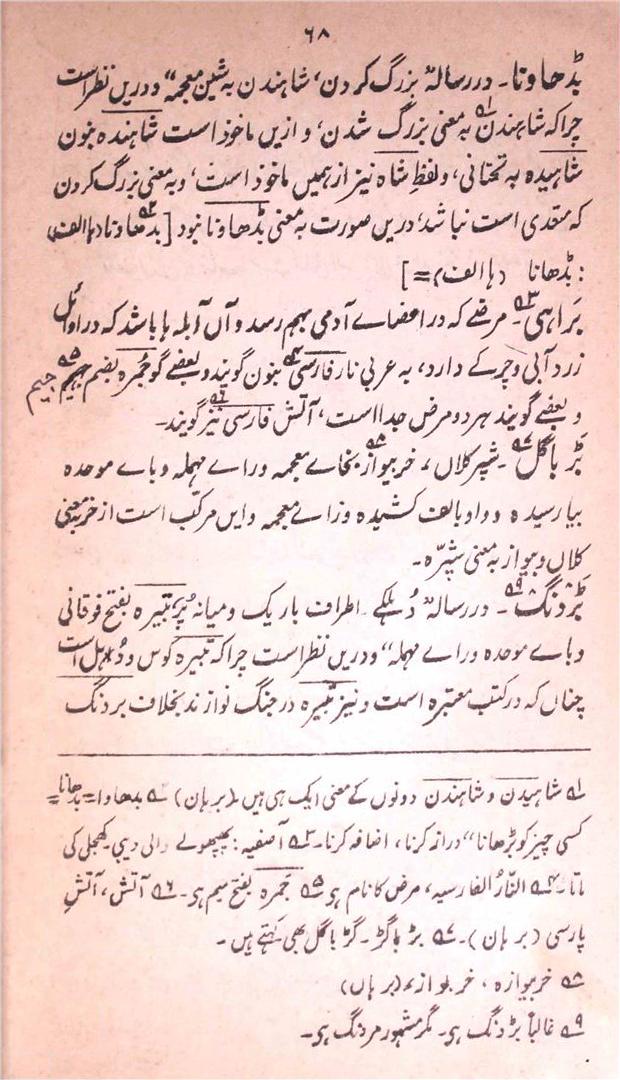 ۶۸
بڈھاونا۔ در رسالہ بزرگ کردن، شاہندن بہ شین معجمہ" و دریں نظر است
چرا کہ شاہندن ۵۱ بہ معنی بزرگ شدن، و ازیں ماخوذ است شاہندہ بنون
شاہیدہ بہ تحتانی، و لفظِ شاہ نیز از ہمیں ماخوذ است، و بہ معنی بزرگ کردن
کہ متعدی است نباشد، دریں صورت بہ معنی بڈھاونا نبود [بڈھاونا ۵۲ (ہا الف)
: بڈھانا (ہا الف) =]
بَراہی ۵۳۔ مرضے کہ در اعضاے آدمی بہم رسد و آں آبلہ ہا باشد کہ در اوائل
زرد آبی و چرکے دارد، بہ عربی نار فارسی ۵۴ بنون گویند و بعضے گو جُمرہ بضم جیم ۵۵ جیم
و بعضے گویند ہر دو مرض جدا است، آتش فارسی ۵۶ نیز گویند۔
بَڑ باگل ۵۷۔ شپر کلاں، خربیواز ۵۸ بخاے معجمہ و راے مہملہ و باے موحدہ
بیا رسیدہ و واو بالف کشیدہ و زاے معجمہ و ایں مرکب است از خر بمعنی
کلاں و بیواز بہ معنی شپّرہ۔
بَڑدنگ ۵۹۔ در رسالہ دُہلکے اطراف باریک و میانہ پُر، تبیرہ بفتح فوقانی
و باے موحدہ و راے مہملہ" و دریں نظر است چرا کہ تبیرہ کوس و دُہل است
چناں کہ در کتب معتبرہ است و نیز تبیرہ در جنگ نوازند بخلاف بردنگ
۵۱ شاہیدن و شاہندن دونوں کے معنی ایک ہی ہیں (برہان) ۵۲ بدھاوا = بدھانا =
کسی چیز کو بڑھانا" دراز کرنا، اضافہ کرنا۔ ۵۳ آصفیہ: پھپھولے والی دیبی کھجلی کی
ماتا۔ ۵۴ النّارُ الفارسیہ، مرض کا نام ہی ۵۵ جَمرہ بفتح جیم ہی۔ ۵۶ آتش، آتشِ
پارسی (برہان)۔ ۵۷ بڑ باگڑ۔ گڑ باگل بھی کہتے ہیں۔
۵۸ خربیوازہ، خربواز (برہاں)
۵۹ غالباً بڑدنگ ہی۔ مگر مشہور مردنگ ہی۔